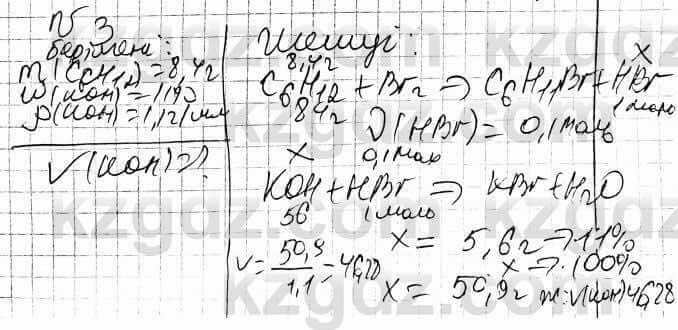 № 3
берілгені:
m(C6H12)=8,4г
w(KOH)=11%
ρ(KOH)=1,1г/мл
V(KOH)=?
Шешуі:
8,4г x
C6H12 + Br2 => C6H11Br + HBr
84г 1моль
ν(HBr)= 0,1моль
x 0,1моль
KOH + HBr => KBr + H2O
56 1моль
x = 5,6г → 11%
x → 100%
V = 50,9/1,1 = 46,28
x = 50,9г ж: V(KOH) 46,28
kzgdz.com